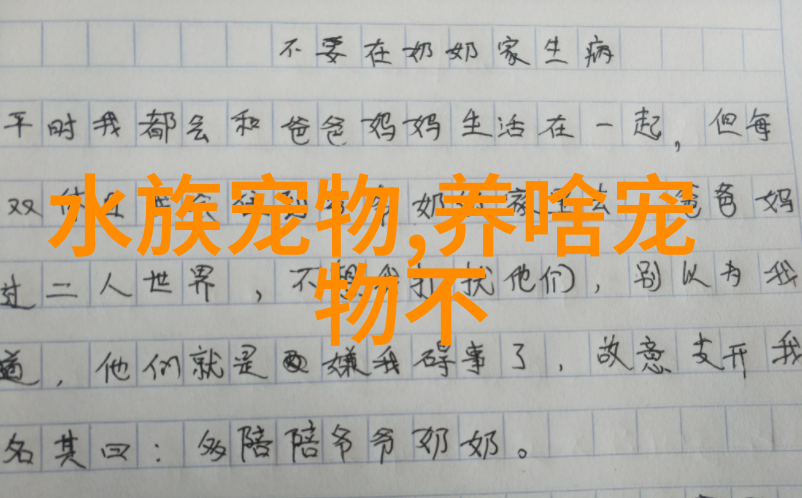 不要在奶奶家生病
平时我都会和爸爸妈妈生活在一起，但每
双休日 奶 家 去 爸爸妈
水族宠物,养啥宠
过二人世界，不想我打扰他们，别以为我
物不
道，他们就是嫌我碍事了，故意支开我
名其曰：多陪陪爷爷奶奶。